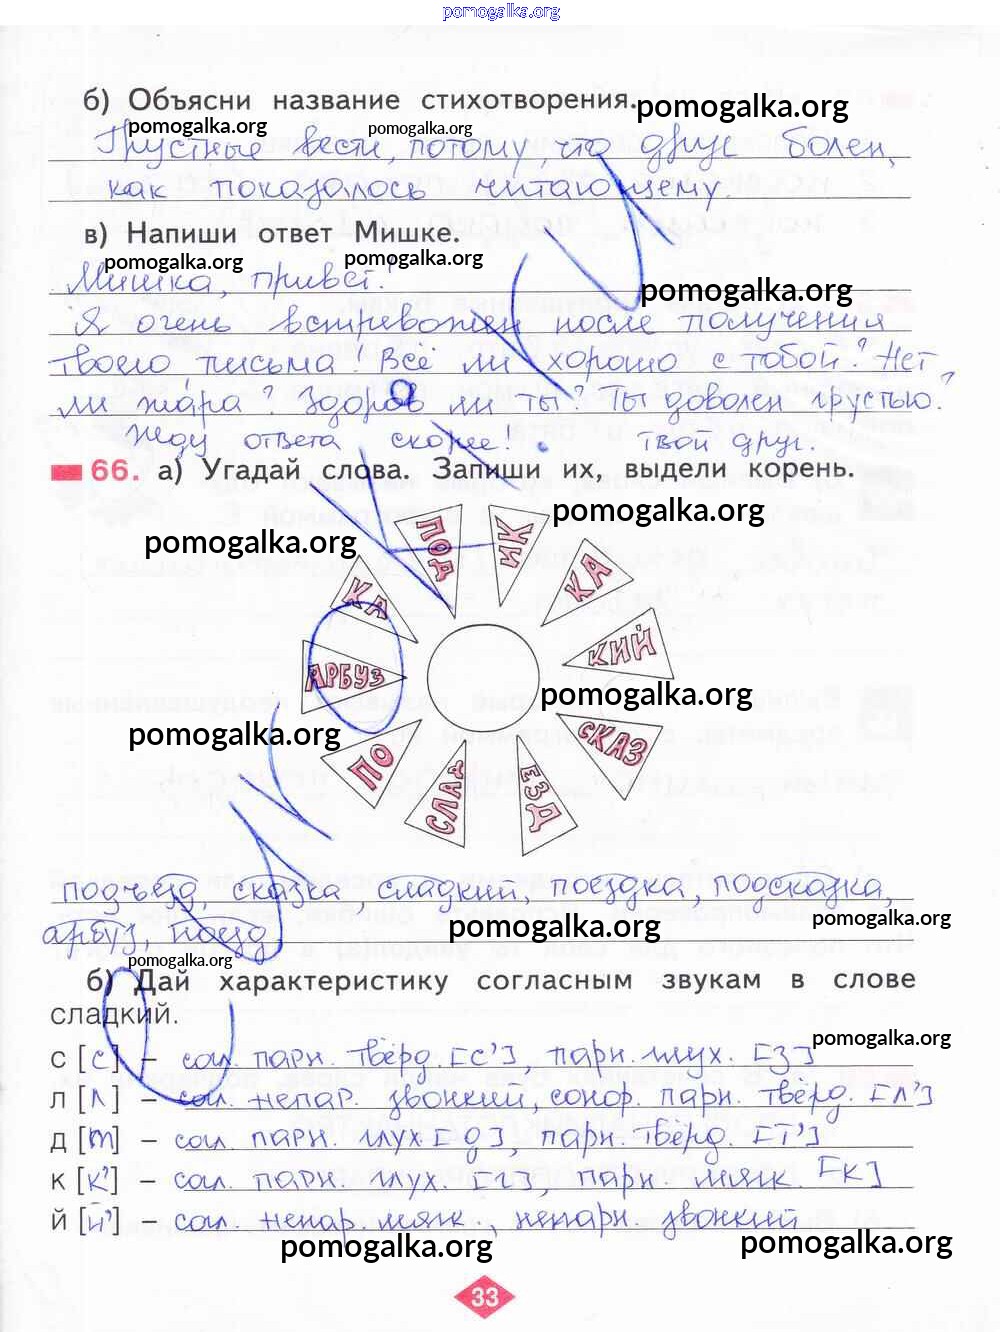 pomogalka.org
б) Объясни название стихотворения. pomogalka.org
pomogalka.org pomogalka.org
Грустные вести, потому, что друг болен,
как показалось читающему.
в) Напиши ответ Мишке.
pomogalka.org pomogalka.org
Мишка, привет!
pomogalka.org
Я очень встревожен после получения
твоего письма! Всё ли хорошо с тобой? Нет
ли жара? Здоров ли ты? Ты доволен грустью?
Жду ответа скорее! Твой друг.
66. а) Угадай слова. Запиши их, выдели корень.
pomogalka.org
pomogalka.org
ПОД
ИК
КА
КИЙ
СКАЗ
ЕЗД
СЛАД
ПО
АРБУЗ
КА
pomogalka.org
pomogalka.org
подъезд, сказка сладкий, поездка, подсказка,
pomogalka.org
арбуз, поезд
pomogalka.org
pomogalka.org
б) Дай характеристику согласным звукам в слове
сладкий.
pomogalka.org
с [с] – согл. парн. твёрд. [с'], парн. глух. [з]
л [л] – согл. непар. звонкий, сонор. парн. твёрд. [л']
д [т] – согл. парн. глух [д], парн. твёрд. [т']
к [к'] – согл. парн. глух. [г], парн. мягк. [к]
й [й'] – согл. непар. мягк., непарн. звонкий
pomogalka.org pomogalka.org
33
ПОМОГАЛКА.RU